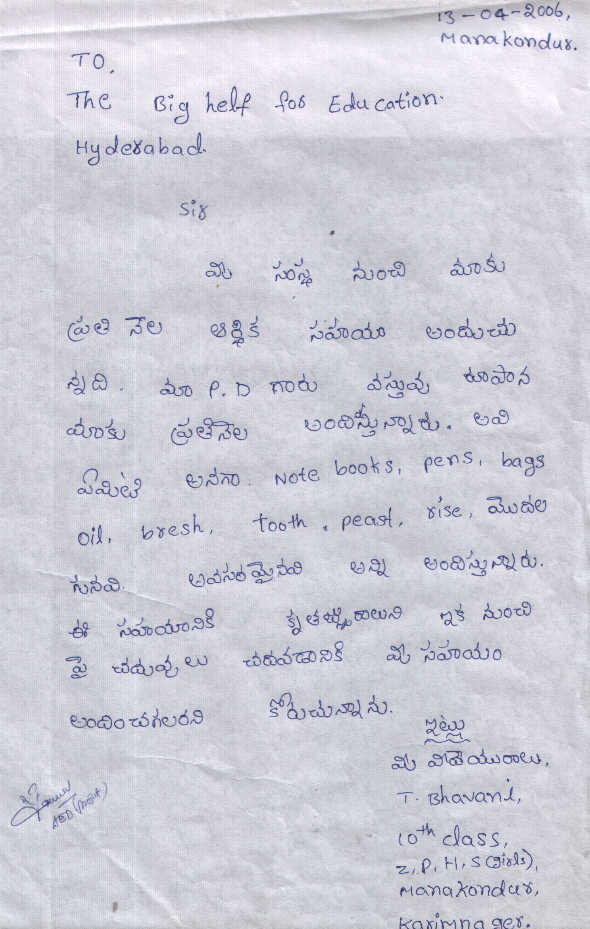 13-04-2006,
Manakondur.
TO,
The Big helf for Education.
Hyderabad.
Sir
మీ సంస్థ నుంచి మాకు
ప్రతి నెల ఆర్థిక సహయా అందుచు
న్నది. మా P.D గారు వస్తువు రూపాన
మాకు ప్రతినెల అందిస్తున్నారు. అవి
ఏమిటి అనగా. Note books, pens, bags
oil, bresh, tooth. peast, rise, మొదల
గునవి. అవసరమైనవి అన్ని అందిస్తున్నారు.
ఈ సహయానికి కృతజ్ఞురాలుని ఇక నుంచి
పై చదువులు చదవడానికి మీ సహయం
అందించగలరని కోరుచున్నాను.
ఇట్లు
మీ విదేయురాలు,
T. Bhavani,
10th class,
Z, P, H, S (Girls),
Manakondur,
Karimnager.